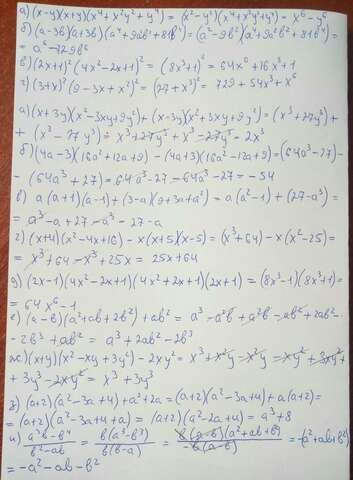 а) (x-y)(x+y)(x⁴+x²y²+y⁴) = (x²-y²)(x⁴+x²y²+y⁴) = x⁶-y⁶
б) (a-3b)(a+3b)(a⁴+9a²b²+81b⁴) = (a²-9b²)(a⁴+9a²b²+81b⁴) =
= a⁶-729b⁶
в) (2x+1)²(4x²-2x+1)² = (8x³+1)² = 64x⁶+16x³+1
г) (3+x)²(9-3x+x²)² = (27+x³)² = 729+54x³+x⁶
а) (x+3y)(x²-3xy+9y²)+(x-3y)(x²+3xy+9y²) = (x³+27y³)+
+(x³-27y³) = x³+27y³+x³-27y³ = 2x³
б) (4a-3)(16a²+12a+9)-(4a+3)(16a²-12a+9) = (64a³-27)-
-(64a³+27) = 64a³-27-64a³-27 = -54
в) a(a+1)(a-1)+(3-a)(9+3a+a²) = a(a²-1)+(27-a³) =
= a³-a+27-a³ = 27-a
г) (x+4)(x²-4x+16)-x(x+5)(x-5) = (x³+64)-x(x²-25) =
= x³+64-x³+25x = 25x+64
д) (2x-1)(4x²-2x+1)(4x²+2x+1)(2x+1) = (8x³-1)(8x³+1) =
= 64x⁶-1
е) (a-b)(a²+ab+2b²)+ab² = a³-a²b+a²b-ab²+2ab²-
-2b³+ab² = a³+2ab²-2b³
ж) (x+y)(x²-xy+3y²)-2xy² = x³+x²y-x²y-xy²+3xy²+
+3y³-2xy² = x³+3y³
з) (a+2)(a²-3a+4)+a²+2a = (a+2)(a²-3a+4)+a(a+2) =
= (a+2)(a²-3a+4+a) = (a+2)(a²-2a+4) = a³+8
и) a³b-b⁴/b²-ab = b(a³-b³)/b(b-a) = b(a-b)(a²+ab+b²)/-b(a-b) = -(a²+ab+b²)
= -a²-ab-b²